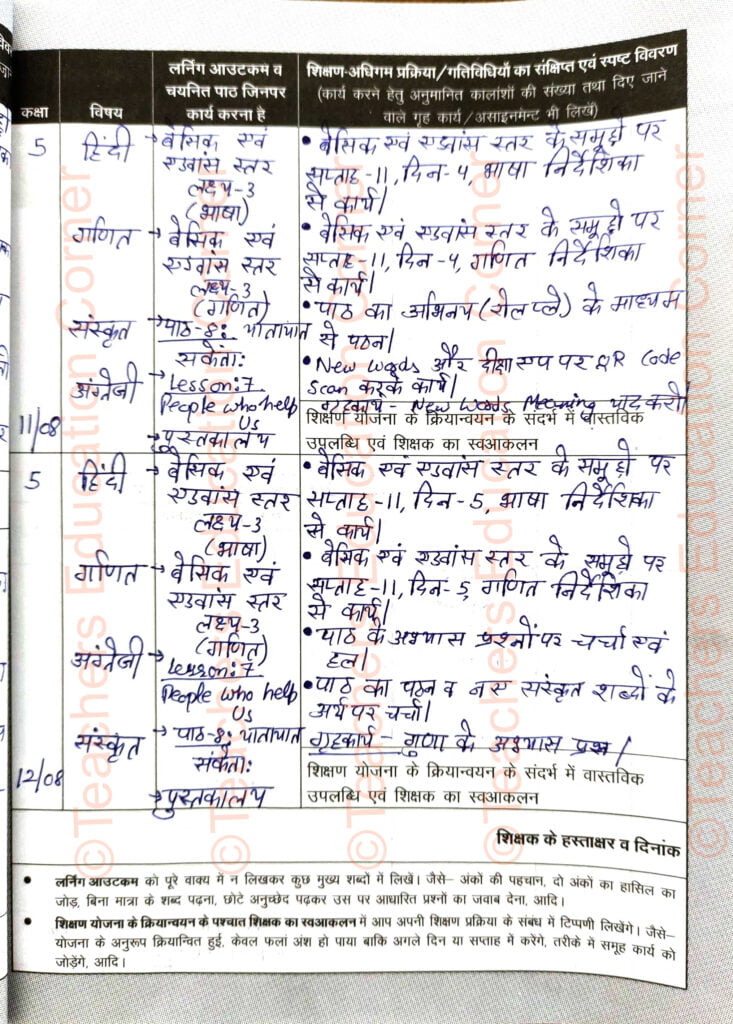 कक्षा
विषय
लर्निंग आउटकम व
चयनित पाठ जिनपर
कार्य करना है
शिक्षण-अधिगम प्रक्रिया/गतिविधियों का संक्षिप्त एवं स्पष्ट विवरण
(कार्य करने हेतु अनुमानित कालांशों की संख्या तथा दिए जाने
वाले गृह कार्य/असाइनमेन्ट भी लिखें)
5
हिंदी
→ बेसिक एवं
एडवांस स्तर
लक्ष्य-3
(भाषा)
• बेसिक एवं एडवांस स्तर के समूहों पर
सप्ताह-11, दिन-4, भाषा निर्देशिका
से कार्य।
गणित
→ बेसिक एवं
एडवांस स्तर
लक्ष्य-3
(गणित)
• बेसिक एवं एडवांस स्तर के समूहों पर
सप्ताह-11, दिन-4, गणित निर्देशिका
से कार्य।
संस्कृत
→ पाठ-8: यातायात
संकेता:
• पाठ का अभिनय (रोल प्ले) के माध्यम
से पठन।
अंग्रेजी
→ Lesson:7
People who help
us
• New words और दीक्षा एप पर QR Code
Scan करके कार्य।
गृहकार्य - New words Meaning याद करो।
11/08
→ पुस्तकालय
शिक्षण योजना के क्रियान्वयन के संदर्भ में वास्तविक
उपलब्धि एवं शिक्षक का स्वआकलन
5
हिंदी
→ बेसिक एवं
एडवांस स्तर
लक्ष्य-3
(भाषा)
• बेसिक एवं एडवांस स्तर के समूहों पर
सप्ताह-11, दिन-5, भाषा निर्देशिका
से कार्य।
गणित
→ बेसिक एवं
एडवांस स्तर
लक्ष्य-3
(गणित)
• बेसिक एवं एडवांस स्तर के समूहों पर
सप्ताह-11, दिन-5, गणित निर्देशिका
से कार्य।
अंग्रेजी
→ Lesson:7
People who help
us
• पाठ के अभ्यास प्रश्नों पर चर्चा एवं
हल।
संस्कृत
→ पाठ-8: यातायात
संकेता:
• पाठ का पठन व नए संस्कृत शब्दों के
अर्थ पर चर्चा।
गृहकार्य - गुणा के अभ्यास प्रश्न।
12/08
→ पुस्तकालय
शिक्षण योजना के क्रियान्वयन के संदर्भ में वास्तविक
उपलब्धि एवं शिक्षक का स्वआकलन
शिक्षक के हस्ताक्षर व दिनांक
• लर्निंग आउटकम को पूरे वाक्य में न लिखकर कुछ मुख्य शब्दों में लिखें। जैसे– अंकों की पहचान, दो अंकों का हासिल का
जोड़, बिना मात्रा के शब्द पढ़ना, छोटे अनुच्छेद पढ़कर उस पर आधारित प्रश्नों का जवाब देना, आदि।
• शिक्षण योजना के क्रियान्वयन के पश्चात शिक्षक का स्वआकलन में आप अपनी शिक्षण प्रक्रिया के संबंध में टिप्पणी लिखेंगे। जैसे–
योजना के अनुरूप क्रियान्वित हुई, केवल फलां अंश हो पाया बाकि अगले दिन या सप्ताह में करेंगे, तरीके में समूह कार्य को
जोड़ेंगे, आदि।
©Teachers Education Corner
©Teachers Education Corner
©Teachers Education Corner
©Teachers Education Corner